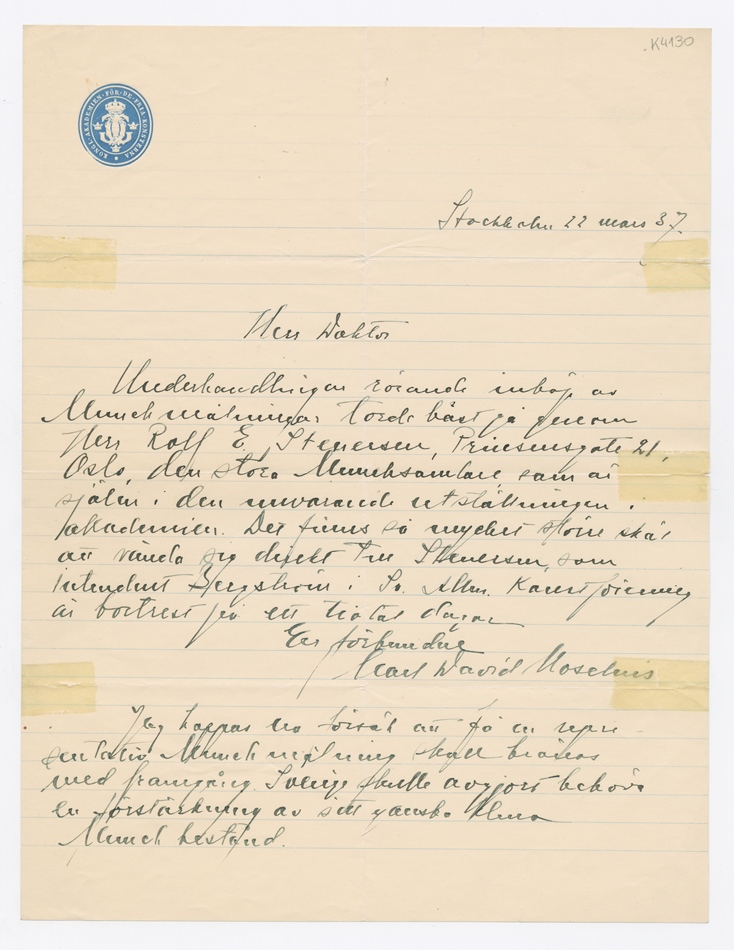 K4130
KONGL·AKADEMIEN·FÖR·DE·FRIA·KONSTERNA
Stockholm 22 mars 37.
Herr Doktor
Underhandlingar rörande inköp av
Munchmålningar torde bäst gå genom
Herr Rolf E. Stenersen, Prinsensgate 21,
Oslo, den stora Munchsamlare som är
själen i den nuvarande utställningen i
akademien. Det finns så mycket större skäl
att vända sig direkt till Stenersen, som
Intendent Bergström i Sv. Allm. Konstförening
är bortrest på ett tiotal dagar
Er förbundne
Carl David Moselius
Jag hoppas att få en repre
sentativ Munchmålning skall krönas
med framgång. Sverige skulle avgjort behöva
en förstärkning av sitt ganska klena
Munch bestånd.